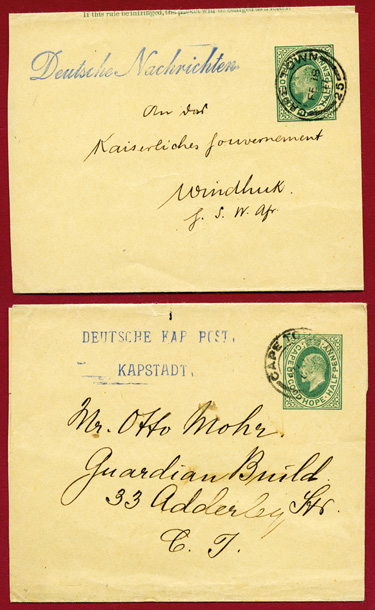 If this rule be infringed, the
Deutsche Nachrichten
CAPE TOWN
FE 18
25
HALFPENNY
An das
Kaiserliches Gouvernement
Windhuk.
G. S. W. Afr.
DEUTSCHE KAP POST,
KAPSTADT,
CAPE TO
CAPE OF GOOD HOPE HALFPENNY
Mr. Otto Mohr
Guardian Build.
33 Adderley Str.
C. T.